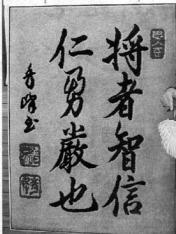 将者智信
仁勇嚴也